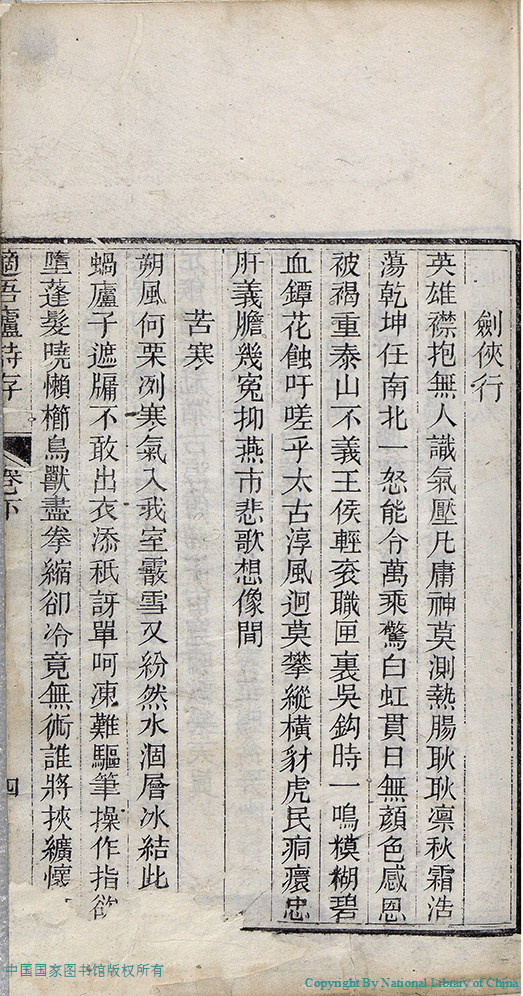 劍俠行
英雄襟抱無人識氣壓凡庸神莫測熱腸耿耿凛秋霜浩
蕩乾坤任南北一怒能令萬乘驚白虹貫日無顏色感恩
被褐重泰山不義王侯輕衮職匣裏吳鈎時一鳴模糊碧
血鐔花蝕吁嗟乎太古淳風迥莫攀縱橫豺虎民痌瘝忠
肝義膽幾寃抑燕市悲歌想像間
苦寒
朔風何栗冽寒氣入我室霰雪又紛然水涸層冰結此
蝸廬子遮牖不敢出衣添秖訝單呵凍難驅筆操作指欲
墮蓬髮曉懶櫛鳥獸盡拳縮卻冷竟無術誰將挾纊懷
適吾廬詩存 卷下 四
中国国家图书馆版权所有
Copyright By National Library of China